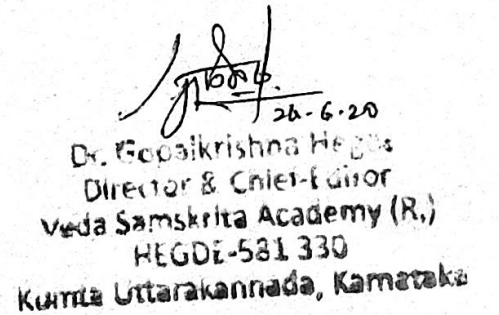 26-6-20
Dr. Gopalkrishna Hegde
Director & Chief-Editor
Veda Samskrita Academy (R.)
HEGDE-581 330
Kumta Uttarakannada, Karnataka